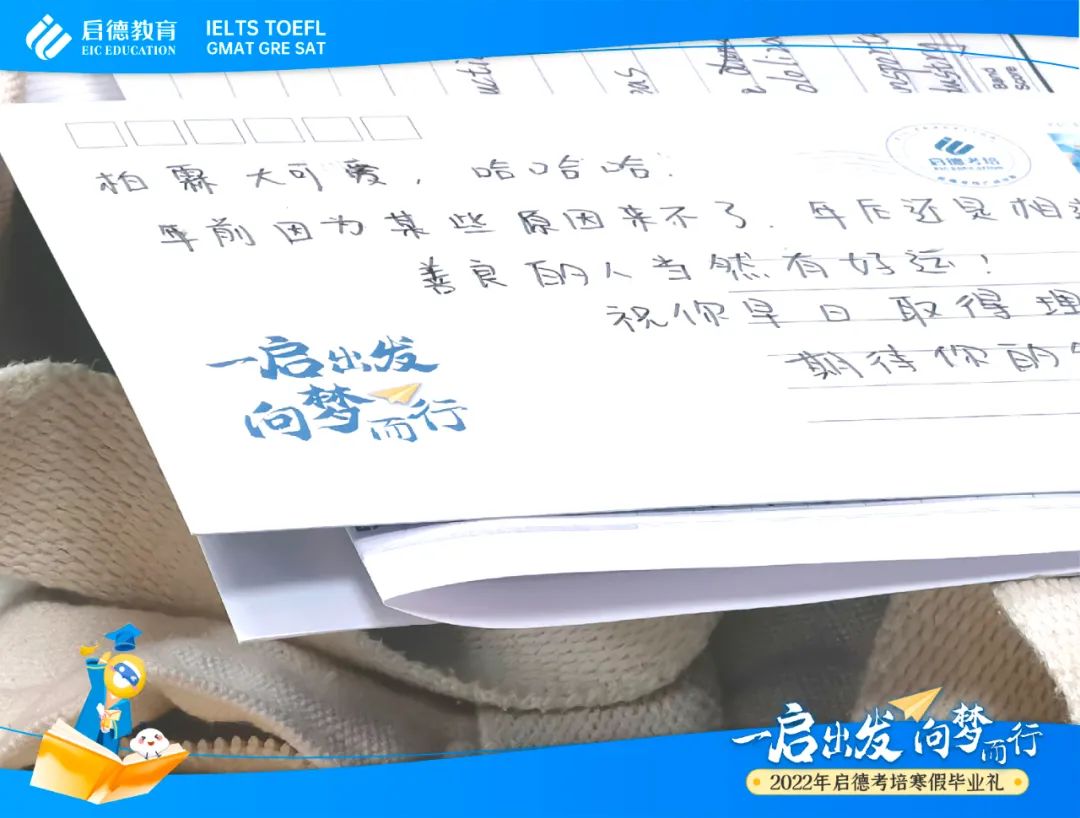 启德教育
EIC EDUCATION
IELTS TOEFL
GMAT GRE SAT
Band
Score
启德考培
EIC EDUCATION
柏霖大可爱,哈哈哈.
年前因为某些原因来不了.年后还是相
善良的人当然有好运!
祝你早日取得理
期待你的
一启出发
向梦而行
一启出发 向梦而行
2022年启德考培寒假毕业礼